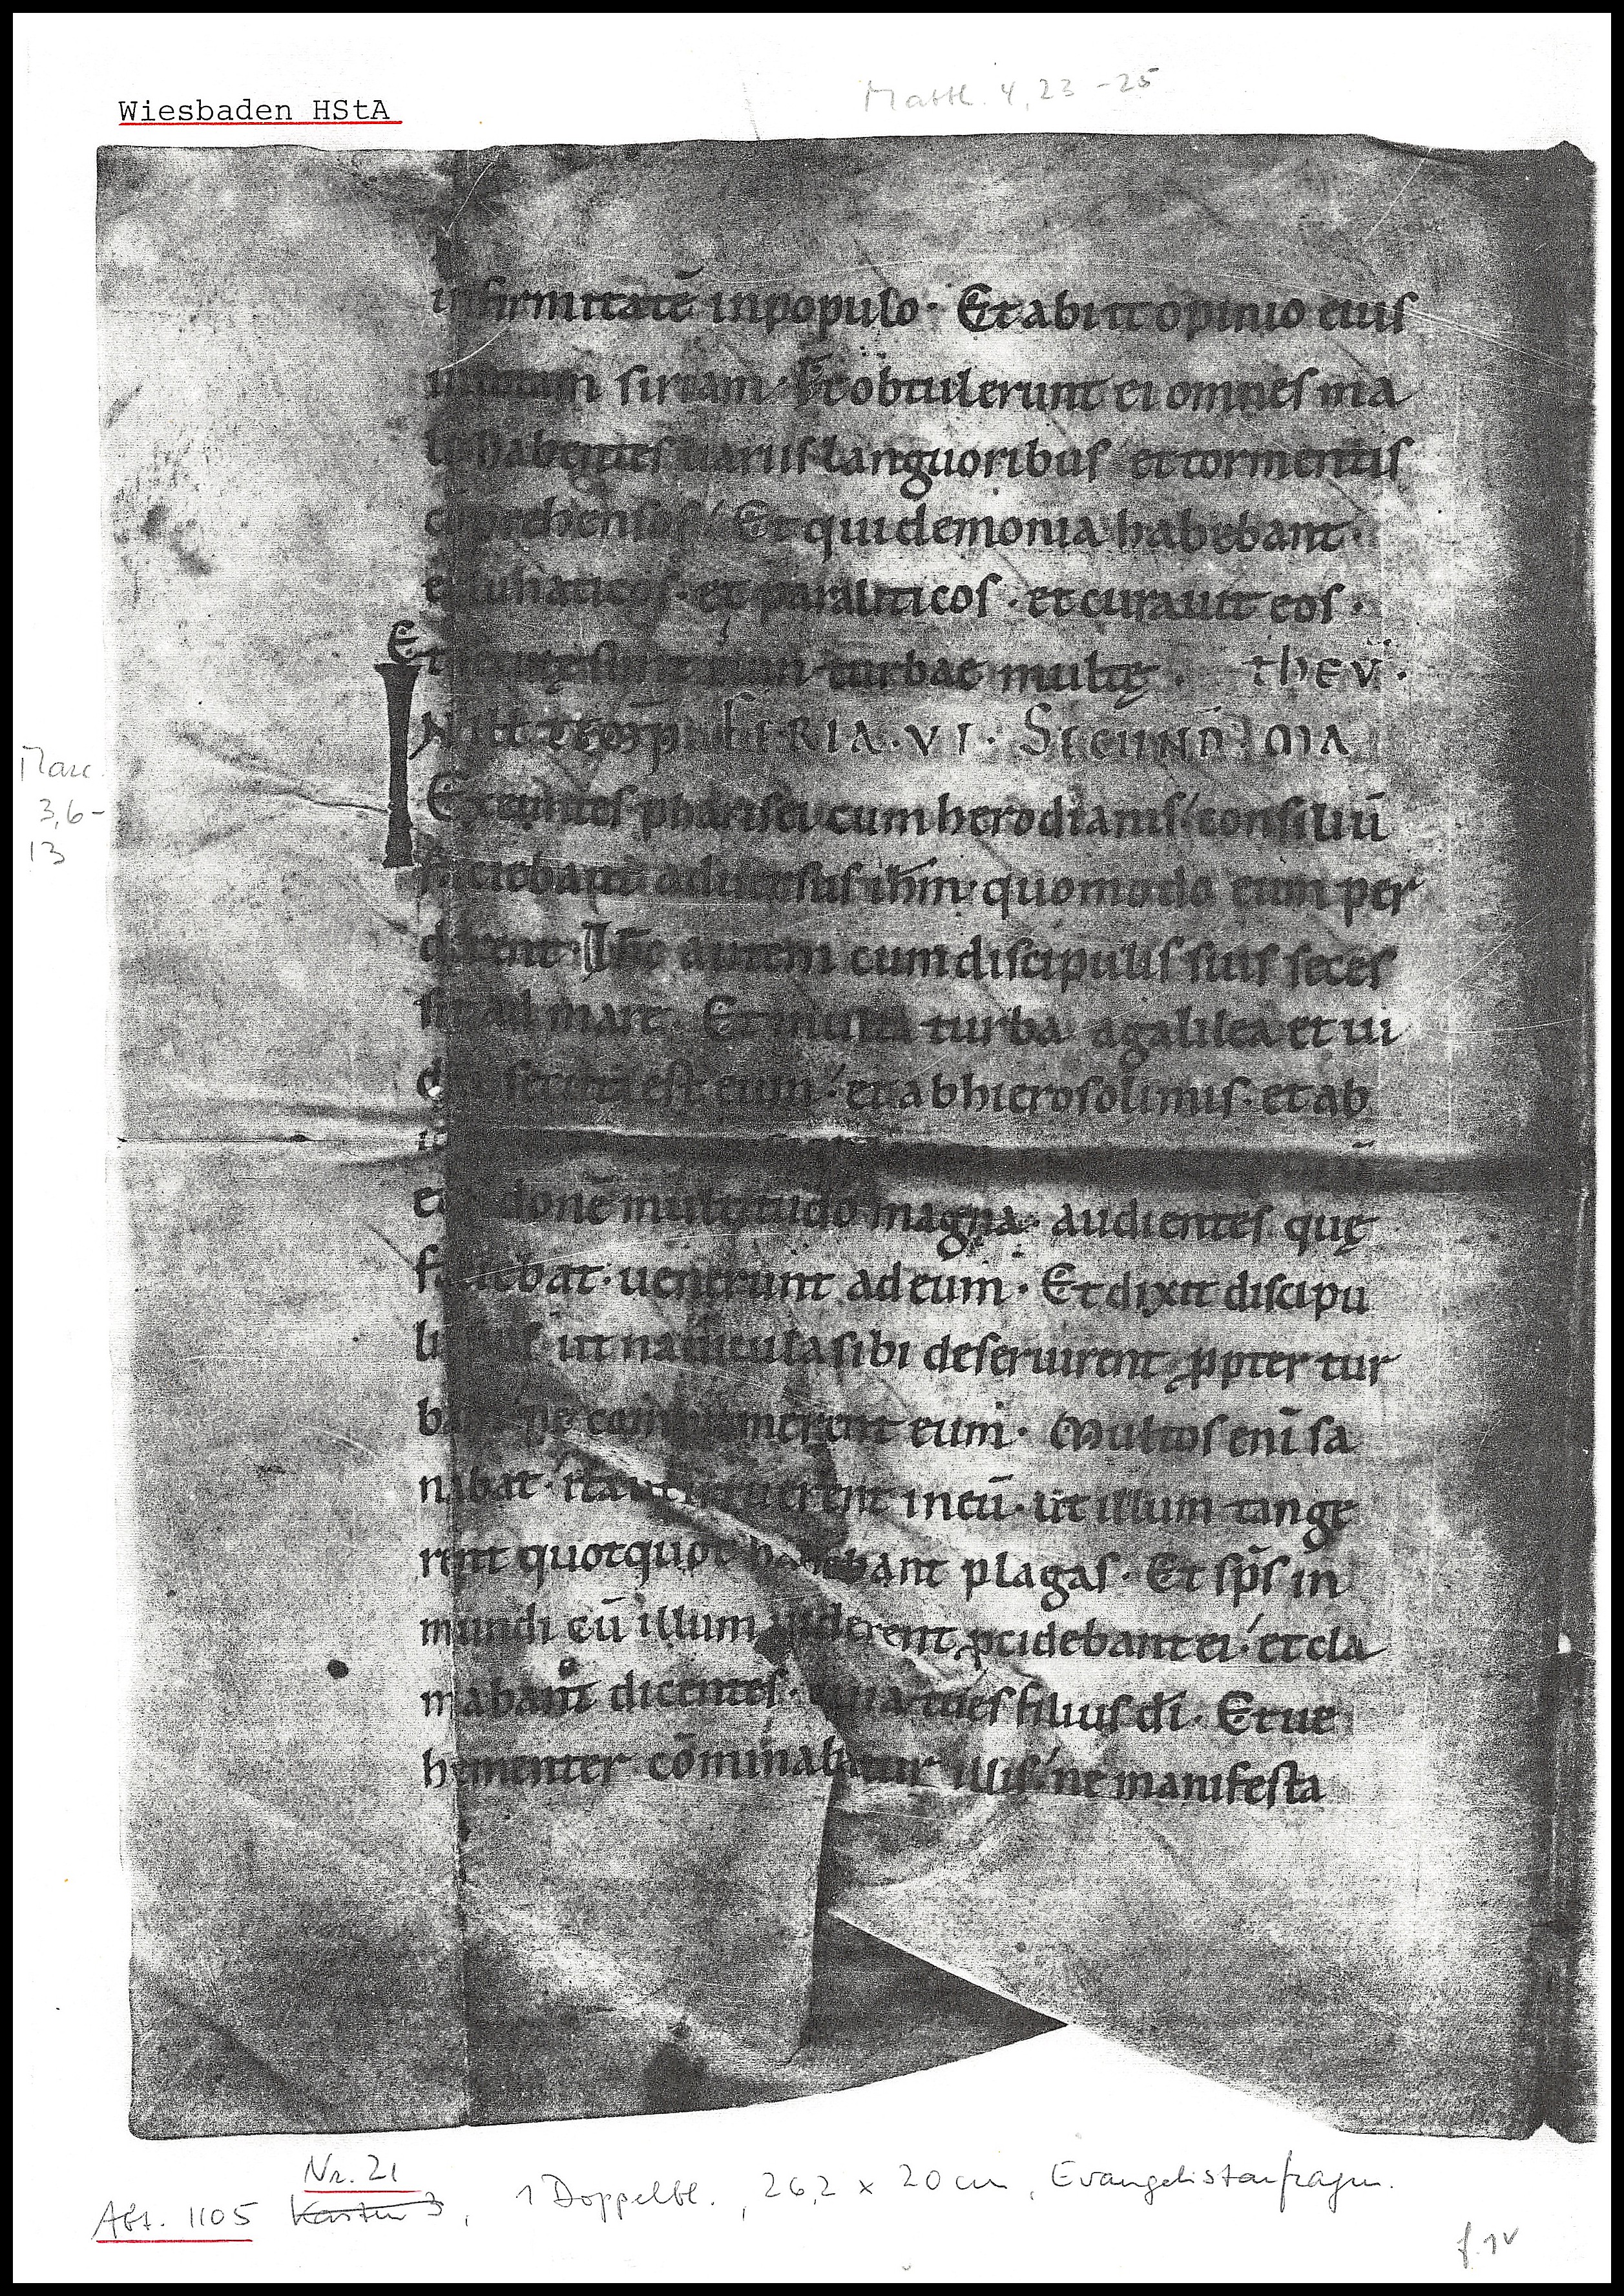 Wiesbaden HStA
Matth. 4, 23 - 25
infirmitatē in populo · Et abiit opinio eius
siriam · Et obtulerunt ei omnes ma
le habentes uariis languoribus et tormentis
Et qui demonia habebant ·
et paraliticos · et curauit eos ·
Et turbae multę ·
FERIA · VI · SECUND
Marc.
3,6-
13
Exeuntes pharisei cum herodianis consiliū
faciebant aduersus ihm · quomodo eum per
derent · Ihc autem cum discipulis suis seces
sit ad mare · Et multa turba a galilea et iu
est eum · et ab hierosolimis · et ab
donē multitudo magna · audientes quę
faciebat · uenerunt ad eum · Et dixit discipu
ut nauicula sibi deseruirent ꝓpter tur
bam ne eum · Multos enī sa
nabat · ita ut irruerent in eū · ut illum tange
rent quotquot habebant plagas · Et sp̄s in
mundi cū illum uiderent ꝓcidebant ei · et cla
mabant dicentes · quia tu es filius dī · Et ue
hementer cōminabatur illis ne manifesta
Nr. 21
Abt. 1105 Kasten 3, 1 Doppelbl., 26,2 x 20 cm, Evangelistarfragm.
f. 1v